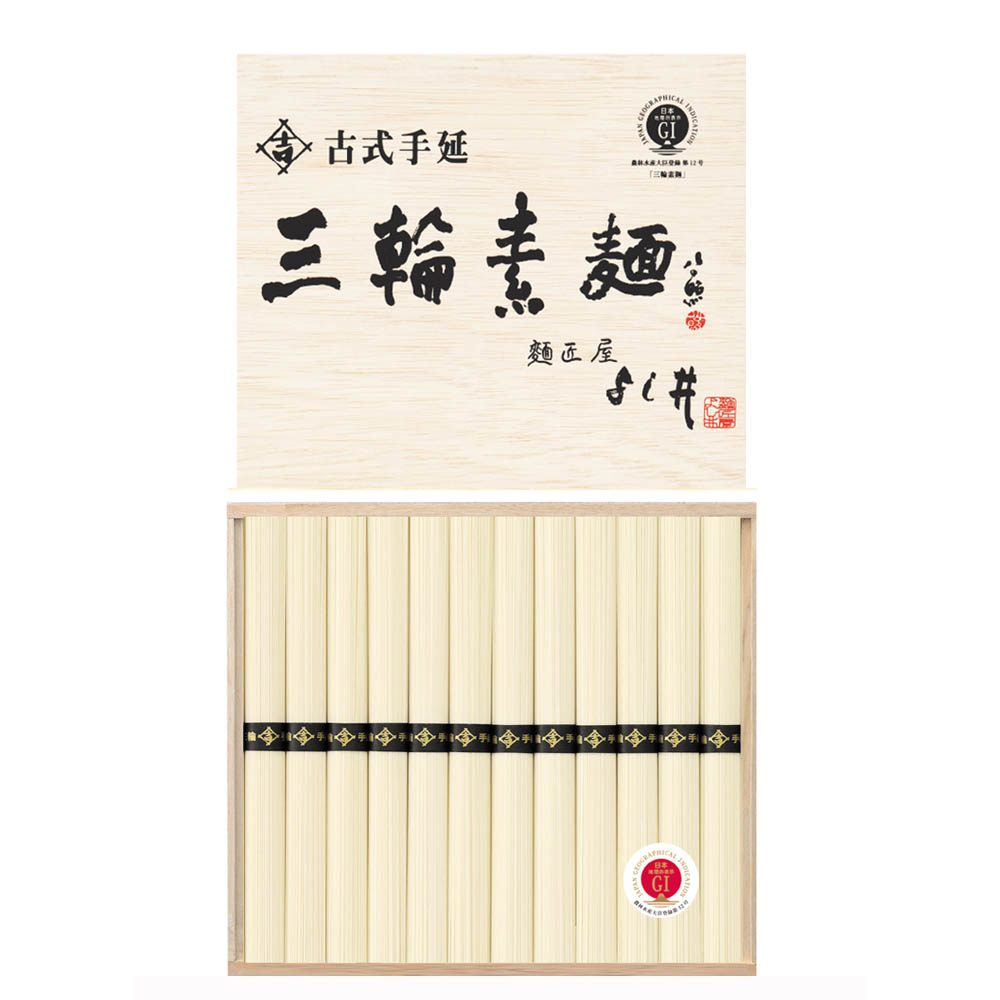 吉 古式手延
JAPAN GEOGRAPHICAL INDICATION
日本
地理的表示
GI
農林水産大臣登録 第12号
「三輪素麺」
三輪素麺
麺匠屋
よし井
輪 手
JAPAN GEOGRAPHICAL INDICATION
日本
地理的表示
GI
農林水産大臣登録第12号